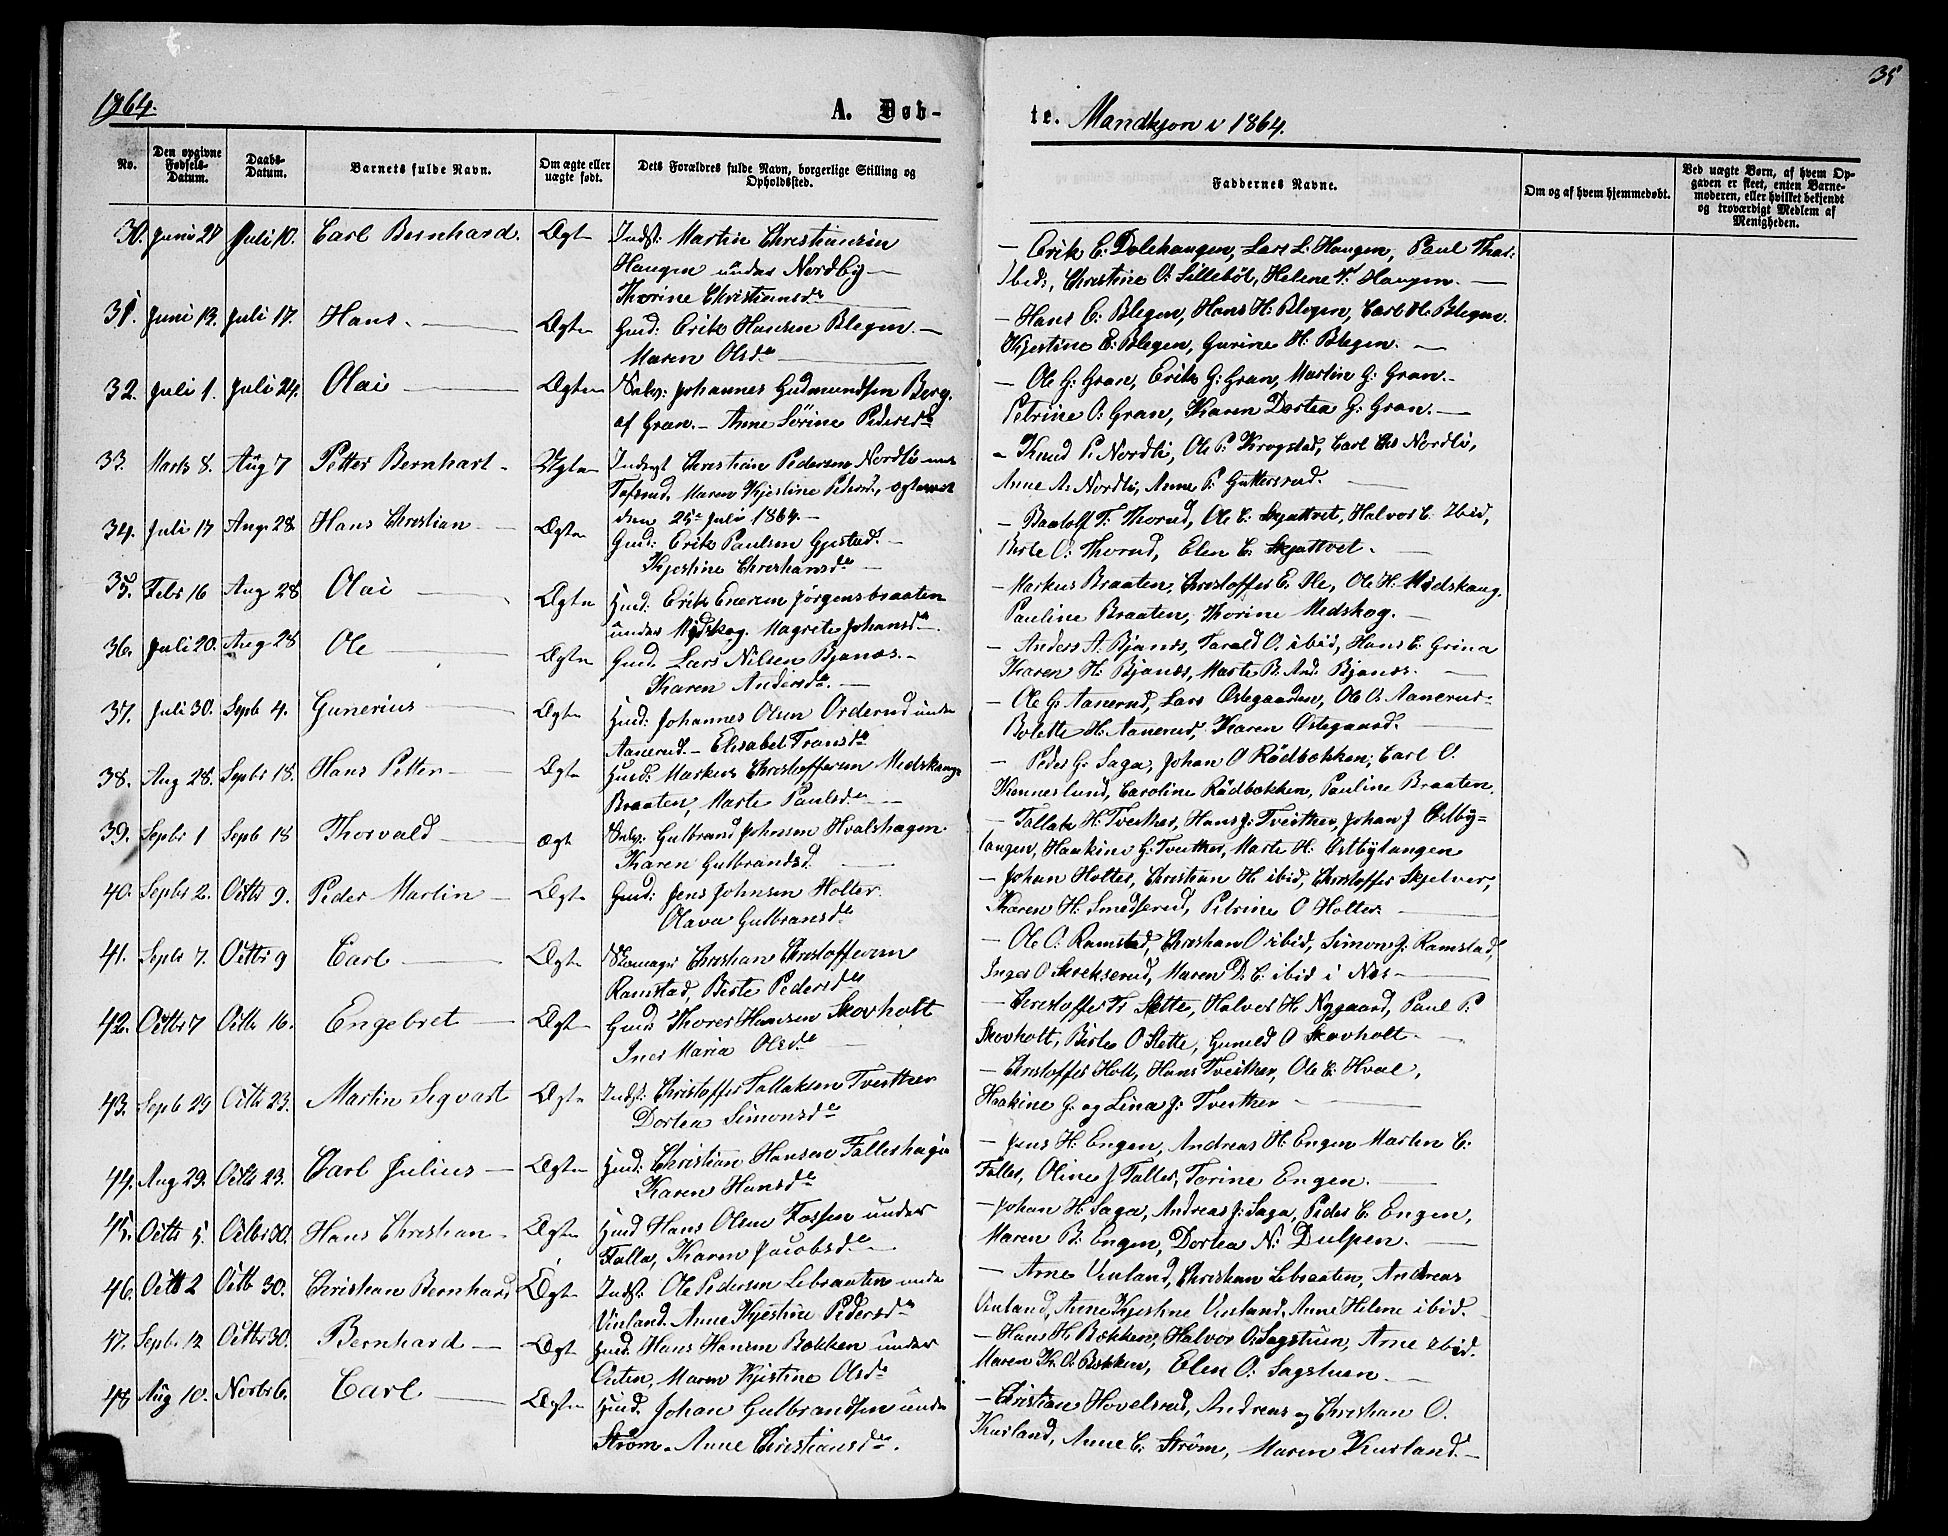 1864.
A. Døb-
te. Mandkjøn i 1864.
35
No.
Den opgivne Fødsels-Datum.
Daabs-Datum.
Barnets fulde Navn.
Om ægte eller uægte født.
Dets Forældres fulde Navn, borgerlige Stilling og Opholdssted.
Faddernes Navne.
Om og af hvem hjemmedøbt.
Ved uægte Børn, af hvem Opgaven er skeet, enten Barnemoderen, eller hvilket bekjendt og troværdigt Medlem af Menigheden.
30. Juni 27 Juli 10. Carl Bernhard. Ægte Indst: Martin Christiansen
Haugen under Nordby —
Thorine Christiansd.
— Erik E. Dalehaugen, Lars L. Haugen, Paul Thor:
Ibid:, Christine O: Lillebøl, Helene T. Haugen. —
31. Juni 13. Juli 17. Hans. — Ægte Gmd: Erik Hansen Blegen. —
Maren Olsd. —
— Hans E: Blegen, Hans H: Blegen, Carl H. Blegen.
Kjestine E: Blegen, Gurine H: Blegen. —
32. Juli 1. Juli 24. Olai — Ægte Selv: Johannes Gudmundsen Berg.
af Gran. — Anne Sørine Pedersd.
— Ole G: Gran, Erik G: Gran, Martin G: Gran. —
Petrine O: Gran, Karen Dortea G: Gran. —
33. Marts 8. Aug 7 Petter Bernhart — Ægte Christian Pedersen Nordli
Maren Kjestine Pedersd.,
den 25de Juli 1864. —
— Knud P. Nordli, Ole P. Krogstad, Carl Chs Nordli,
Anne A. Nordli, Anne P. Guttersrud. —
34. Juli 17 Aug. 28 Hans Christian — Ægte Gmd: Erik Paulsen Gjestad. —
Kjestine Christiansd. —
— Baatolf T. Thorud, Ole E. Skjattvet, Halvor E. Ibid,
Berte O: Thorud, Elen E. Skjattvet. —
35. Febr 16 Aug 28 Olai — Ægte Hmd: Erik Jørgensbraaten
under Midskog. Magrete Johansd. —
— Markus Braaten, Christoffer E. Ile, Ole H. Midskaug.
Pauline Braaten, Thorine Medskog. —
36. Juli 20. Aug 28 Ole — Ægte Gmd. Lars Nilsen Bjanæs. —
Karen Andersd. —
— Anders A. Bjanæs, Tarald O. ibid, Hans E. Grina
Karen H. Bjanæs, Marte B. And. Bjanæs. —
37. Juli 30. Septb 4. Gunerius — Ægte Hmd: Johannes Olsen Orderud under
Aanerud. — Elisabet Fransd.
— Ole G. Aanerud, Lars Østegaarden, Ole O. Aanerud.
Bolette H. Aanerud, Karen Østegaard. —
38. Aug 28. Septbr 18. Hans Petter — Ægte Husd: Markus Christoffersen Medskaug-
Braaten, Marte Paulsd. —
— Peder G. Saga, Johan O Rødbækken, Carl O.
Kannerlund, Caroline Rødbækken, Pauline Braaten.
39. Septbr 1 Septb 18 Thorvald — Ægte Selv: Gulbrand Johnsen Hvalshagen
Karen Gulbrandsd. —
— Tollak H. Tveither, Hans J: Tveither, Johan J Østby-
langen, Haakine G. Tveither, Marte H: Østbylangen
40. Septbr 2. Octbr 9. Peder Martin — Ægte Gmd: Jens Johnsen Holter.
Olava Gulbransd.
— Johan Holter, Christian H ibid, Christoffer Skjelver,
Karen H: Smedserud, Petrine O Holter. —
41. Septbr 7. Octbr 9 Carl — Ægte Skomager Christian Christoffersen
Ramstad, Berte Pedersd.
— Ole O. Ramstad, Christian O ibid, Simon J: Ramstad,
Inger O Skrekserud, Maren D. E. ibid i Næs —
42. Octbr 7 Octbr 16. Engebret — Ægte Gmd Thorer Hansen Skovholt
Iner Maria Olsd. —
— Christoffer Tr Slette, Halvor H. Nygaard, Paul P:
Skovholt, Birte O Slette, Gunild O Skovholt. —
43. Septb 29 Octbr 23. Martin Sigvart Ægte Indst: Christoffer Tollaksen Tveither
Dortea Simonsd.
— Christoffer Holt, Hans Tveither, Ole E. Hval,
Haakine G. og Lina J: Tveither —
44. Aug 29. Octbr 23. Carl Julius — Ægte Hmd: Christian Hansen Falleshagen
Karen Hansd.
— Jens H. Engen, Andreas H. Engen Martin C.
Faller, Oline J Faller, Torine Engen. —
45. Octbr 5. Octbr 30. Hans Christian — Ægte Hmd Hans Olsen Fossen under
Falla, Karen Jacobsd. —
— Johan H. Saga, Andreas J: Saga, Peder C. Engen,
Maren B: Engen, Dortea N: Dulpen. —
46. Octbr 2 Octbr 30. Christian Bernhard Ægte Indst: Ole Pedersen Lebraaten unde
Vinland. Anne Kjestine Pedersd.
— Arne Vinland, Christian Lebraaten, Andreas
Vinland, Anne Kjestine Vinland, Anne Helene ibid. —
47. Septbr 12 Octbr 30. Bernhard — Ægte Hmd. Hans Hansen Bækken under
Maren Kjestine Olsd.
— Hans H. Bækken, Halvor O. Sagstuen, Arne ibid.
Maren Kr. O. Bækken, Elen O: Sagstuen. —
48 Aug 10. Novbr 6. Carl — Ægte Hmd. Johan Gulbrandsen under
Strøm. Anne Christiansd.
— Christian Hovelsrud, Andreas og Christian O.
Kurland, Anne C. Strøm, Maren Kurland. —